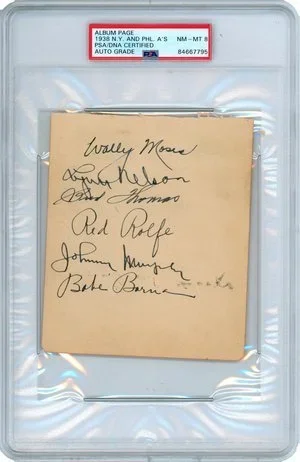 ALBUM PAGE
1938 N.Y. AND PHL. A'S NM-MT 8
PSA/DNA CERTIFIED
AUTO GRADE 84667795
Wally Moses
Lynn Nelson
Thomas
Red Rolfe
Johnny Murphy
Babe Barna